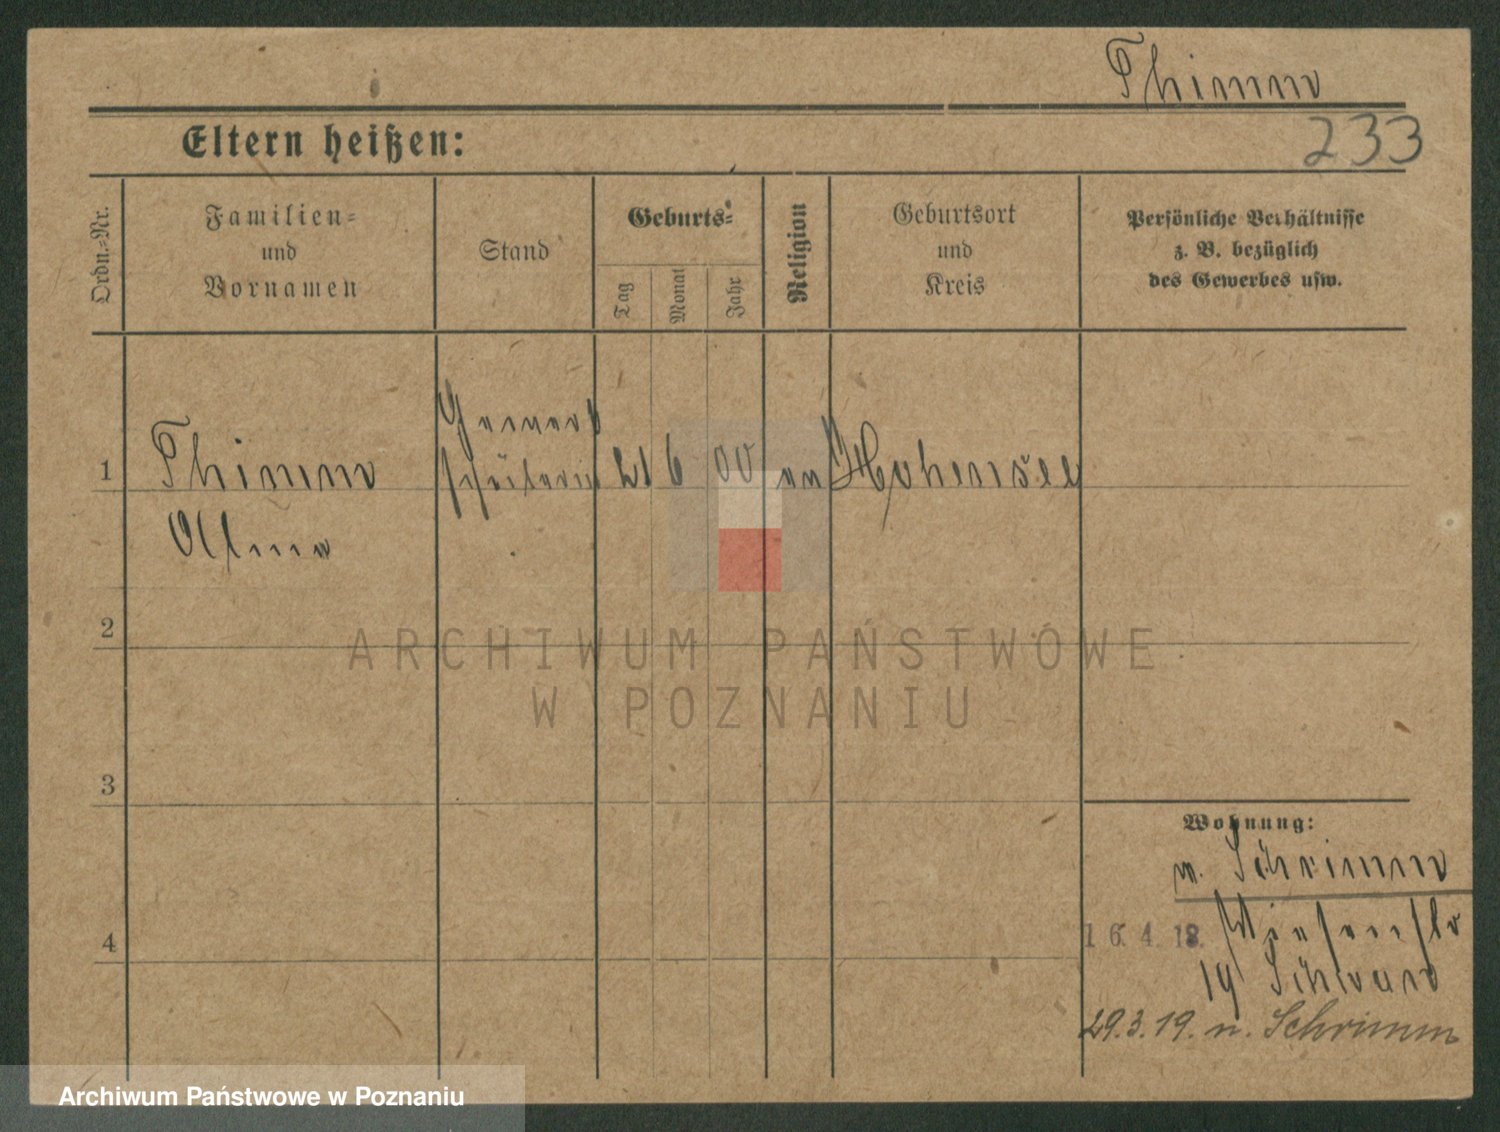 Thimm
233
Eltern heißen:
Ordn.=Nr.
Familien=
und
Vornamen
Stand
Geburts=
Tag
Monat
Jahr
Religion
Geburtsort
und
Kreis
Persönliche Verhältnisse
z. B. bezüglich
des Gewerbes usw.
1
Thimm
schülerin
21 6 00
Hohensee
Alma
2
ARCHIWUM PAŃSTWOWE
W POZNANIU
3
Wohnung:
v. Schrimm
4
16. 4. 18.
19
29.3.19. n. Schrimm
Archiwum Państwowe w Poznaniu